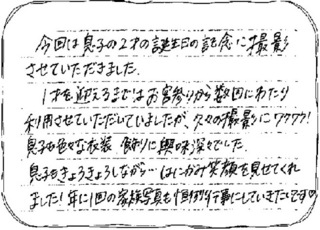 今回は息子の2才の誕生日の記念に撮影
させていただきました。
1才を迎えるまではお宮参りから数回にわたり
利用させていただいていましたが、久々の撮影にワクワク!
息子も色々な衣装、飾りに興味深々でした。
息子もきょろきょろしながら…はにかみ笑顔を見せてくれ
ました!年に1回の家族写真も恒例行事にしていきたいです♡